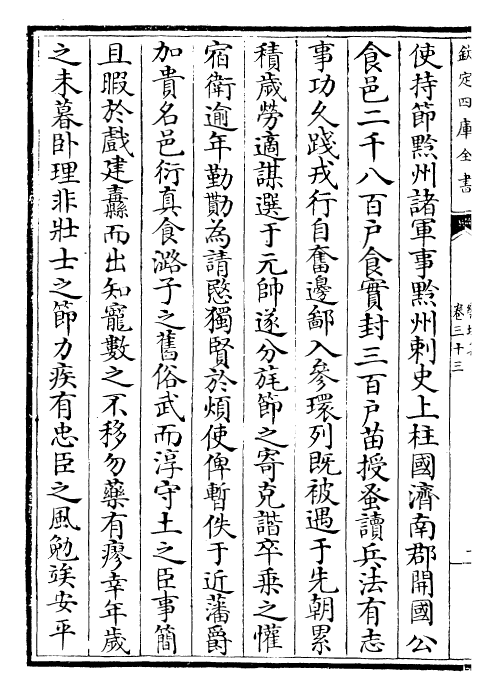 欽定四庫全書
卷三十三
二
使持節黔州諸軍事黔州刺史上柱國濟南郡開國公
食邑二千八百户食實封三百户苗授蚤讀兵法有志
事功久踐戎行自奮邊鄙入參環列既被遇于先朝累
積歲勞適謀選于元帥遂分旄節之寄克諧卒乗之懽
宿衛逾年勤勩為請愍獨賢於煩使俾暫佚于近藩爵
加貴名邑衍真食潞子之舊俗武而淳守土之臣事簡
且暇於戲建纛而出知寵數之不移勿藥有瘳幸年嵗
之未暮卧理非壯士之節力疾有忠臣之風勉竢安平